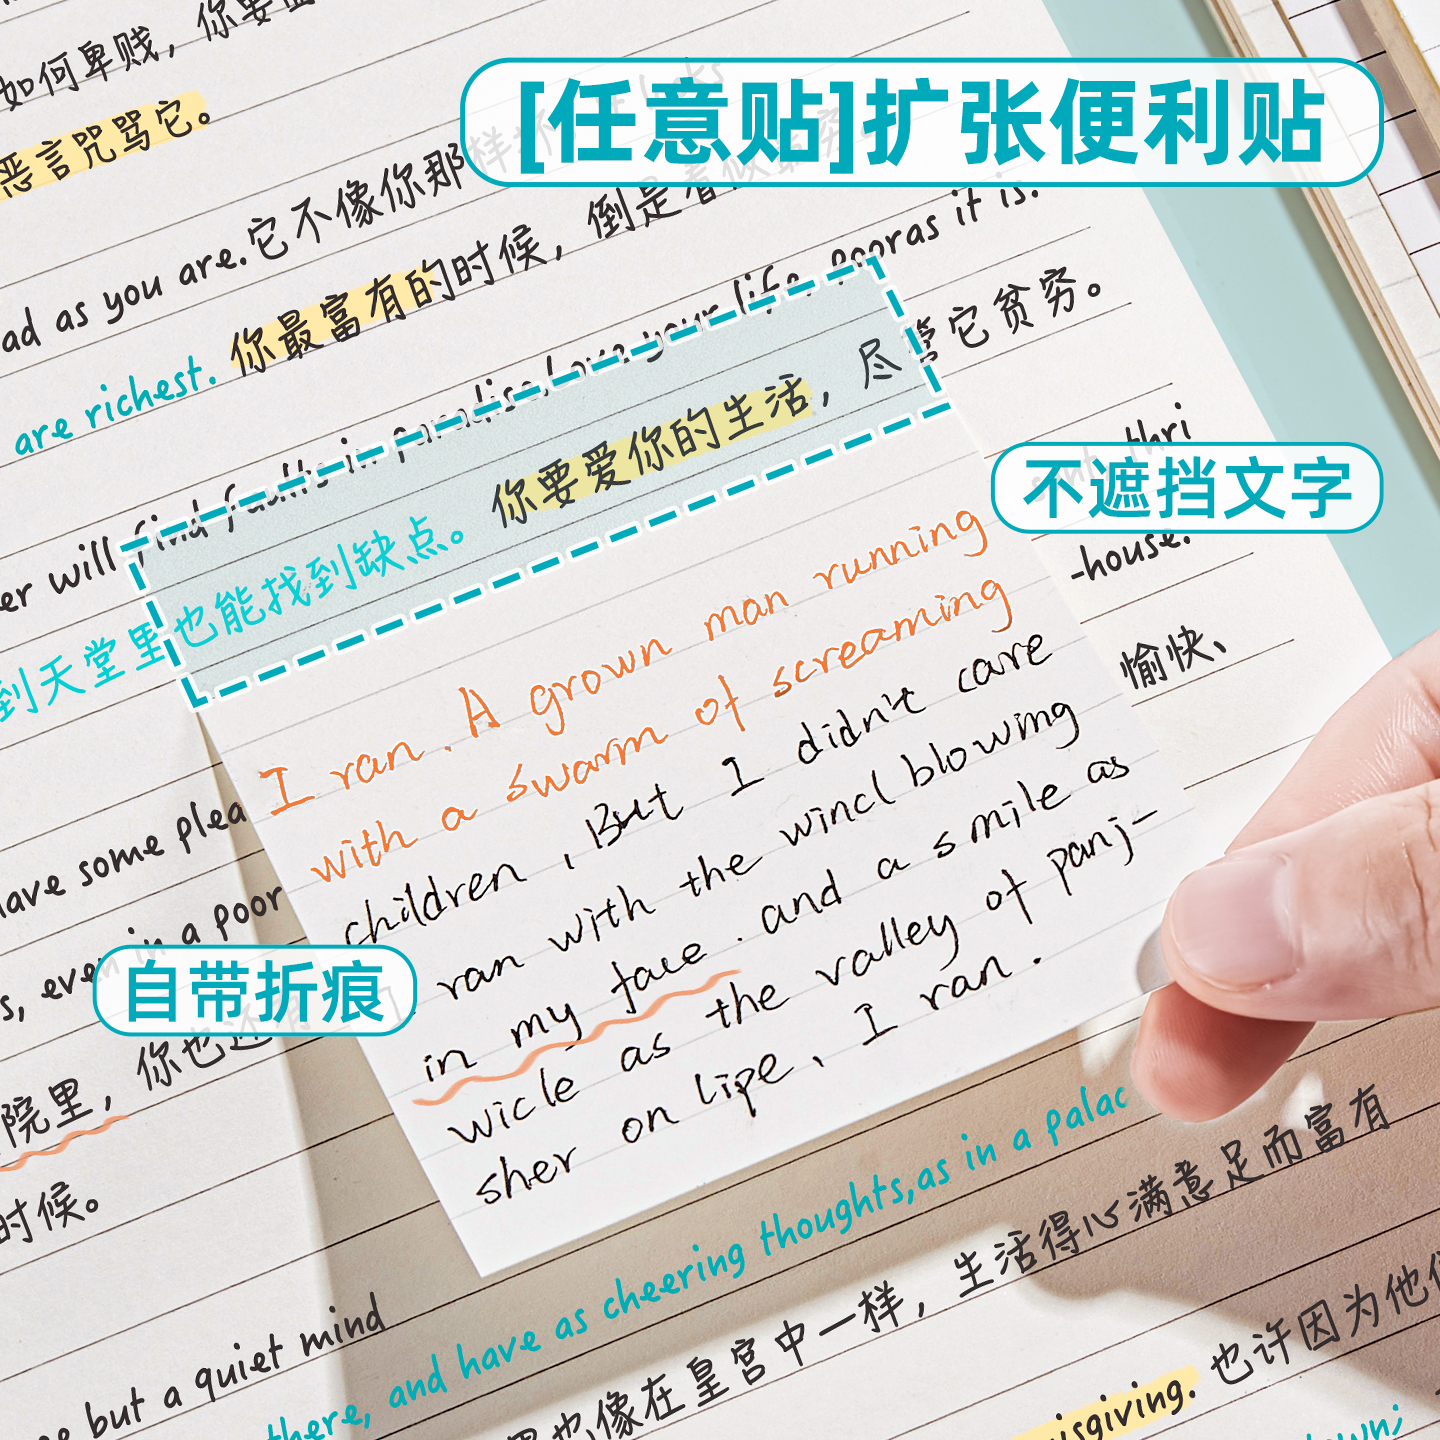 如何卑贱，你要面
[任意贴]扩张便利贴
恶言咒骂它。
ad as you are.它不像你那样坏
are richest.你最富有的时候，倒是看似最穷
er will find faults in paradise.Love your life, poor as it is.
到天堂里也能找到缺点。你要爱你的生活，尽管它贫穷。
不遮挡文字
thri
-house.
愉快、
I ran. A grown man running
with a swarm of screaming
children, But I didn't care
ran with the wincl blowing
in my face. and a smile as
wicle as the valley of panj-
sher on lipe、I ran.
have some plea
s, even in a poor
自带折痕
院里，你也还
时候。
there, and have as cheering thoughts,as in a palac
e but a quiet mind
也像在皇宫中一样，生活得心满意足而富有
isgiving.也许因为他们
own;